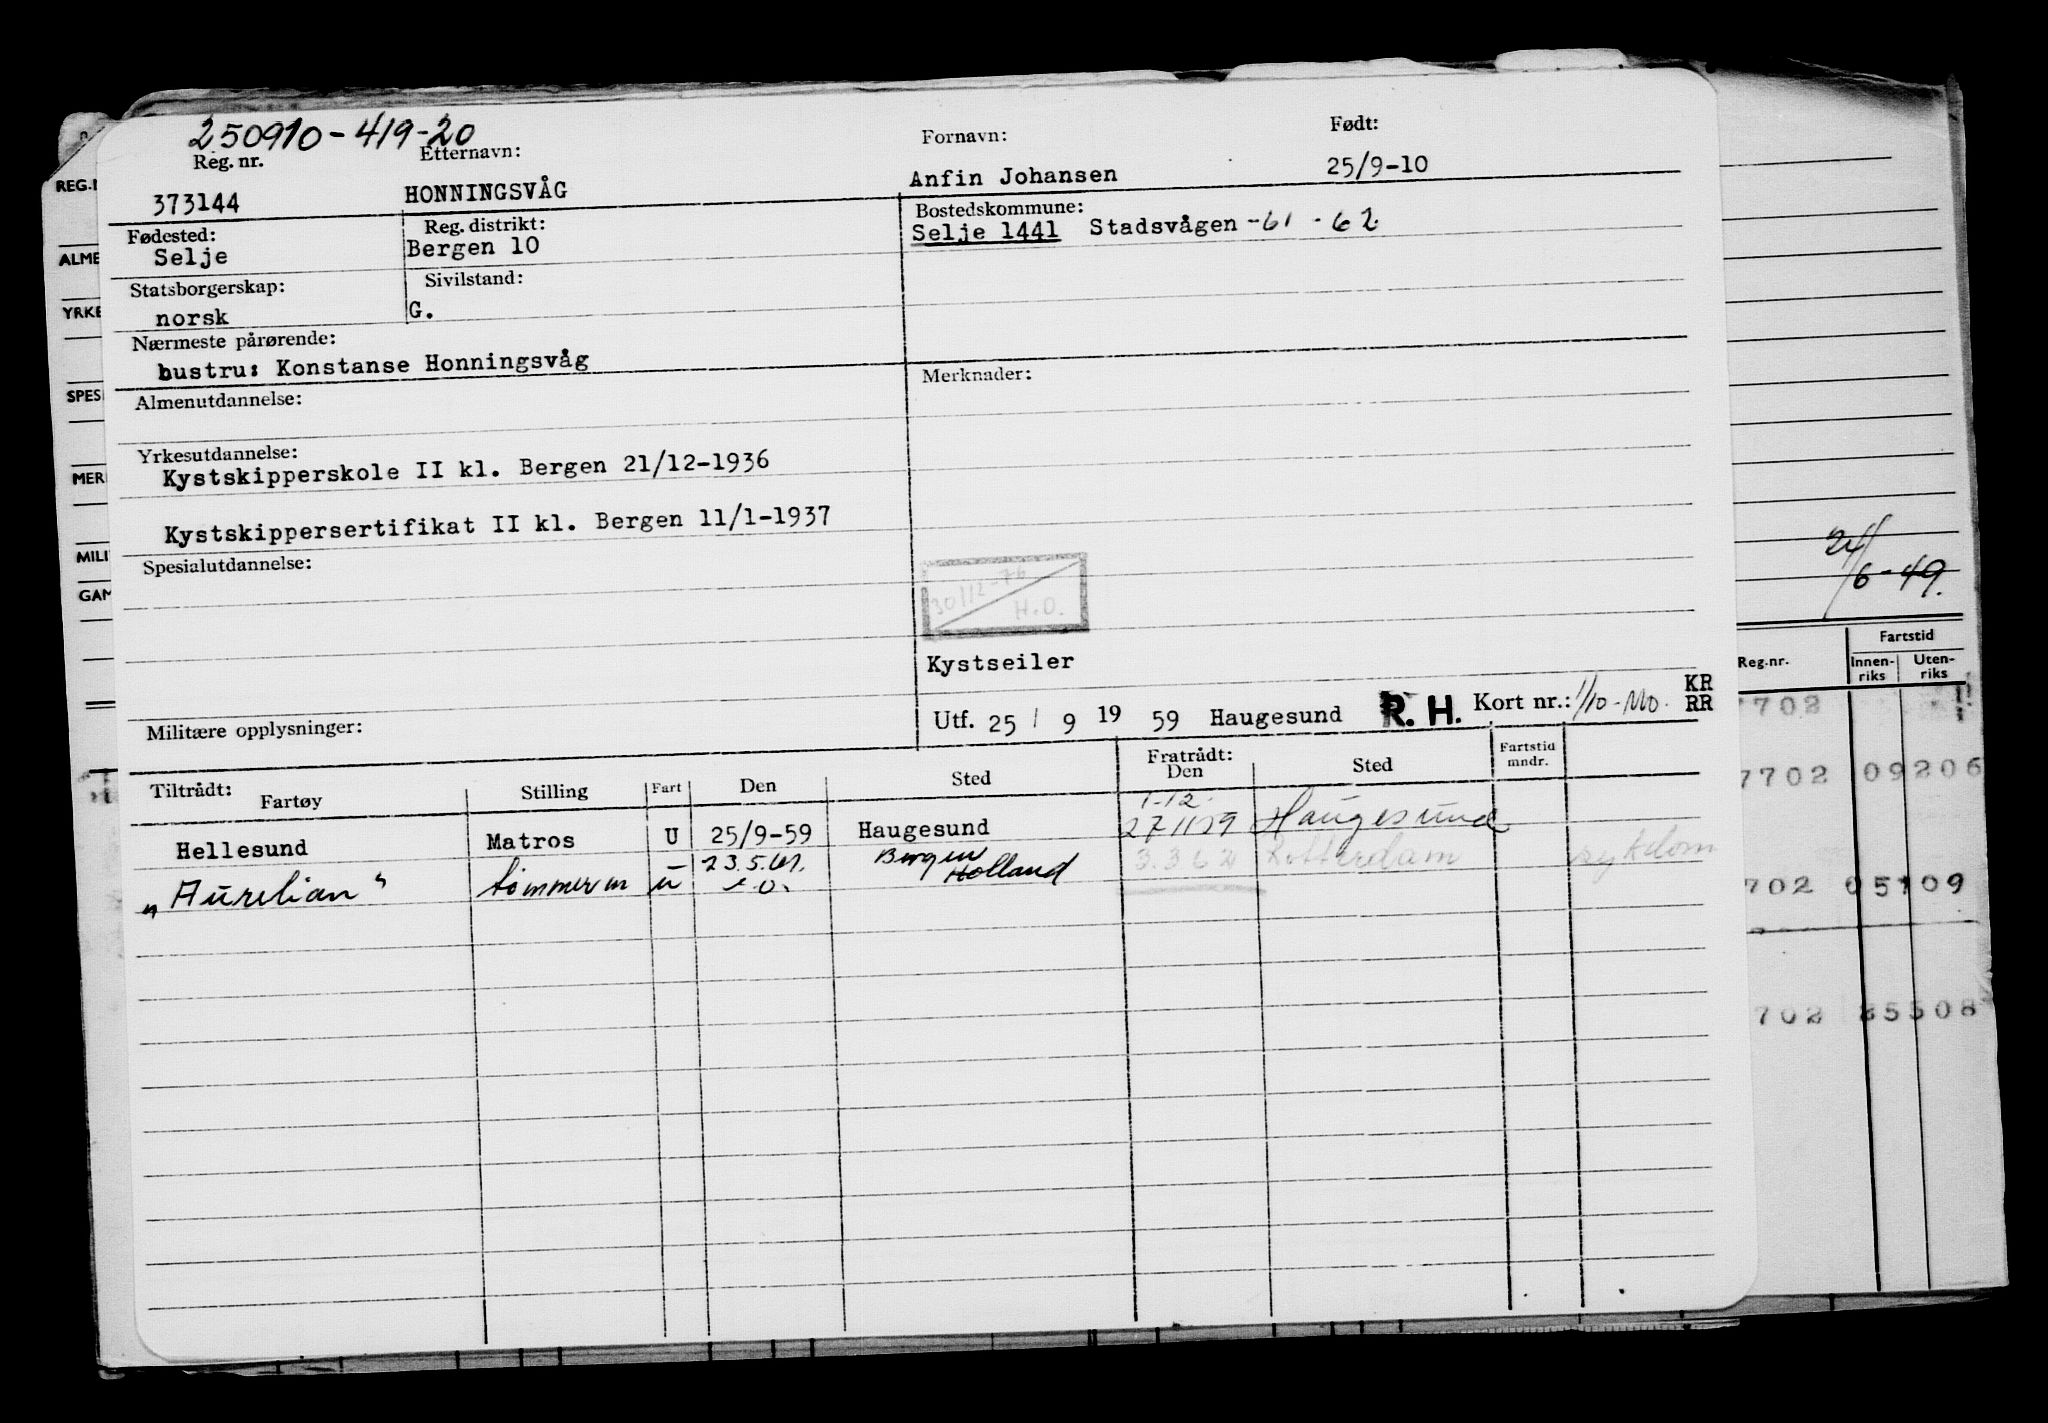 250910-419-20
Reg. nr. Etternavn: Fornavn: Født:
373144 HONNINGSVÅG Anfin Johansen 25/9-10
Fødested: Reg. distrikt: Bostedskommune:
Selje Bergen 10 Selje 1441 Stadsvågen -61 - 62
Statsborgerskap: Sivilstand:
norsk G.
Nærmeste pårørende:
hustru: Konstanse Honningsvåg
Almenutdannelse: Merknader:
Yrkesutdannelse:
Kystskipperskole II kl. Bergen 21/12-1936
Kystskippersertifikat II kl. Bergen 11/1-1937
Spesialutdannelse:
30/12-76
H.O.
Kystseiler
Militære opplysninger: Utf. 25 / 9 19 59 Haugesund R. H. Kort nr.: 1/10- KR RR
Tiltrådt: Fratrådt:
Fartøy Stilling Fart Den Sted Den Sted Fartstid mndr.
1-12.
Hellesund Matros U 25/9-59 Haugesund 27/11 59 Haugesund
"Aurelian" tømmerm u 23.5.61. Bergen Holland 3.3 62 Rotterdam sykdom
REG.
ALME
YRKE
SPES
MER
MILI
GAM
24/6-49.
Reg.nr. Fartstid
Innen-riks Uten-riks
7702
7702 09206
702 05109
702 35508